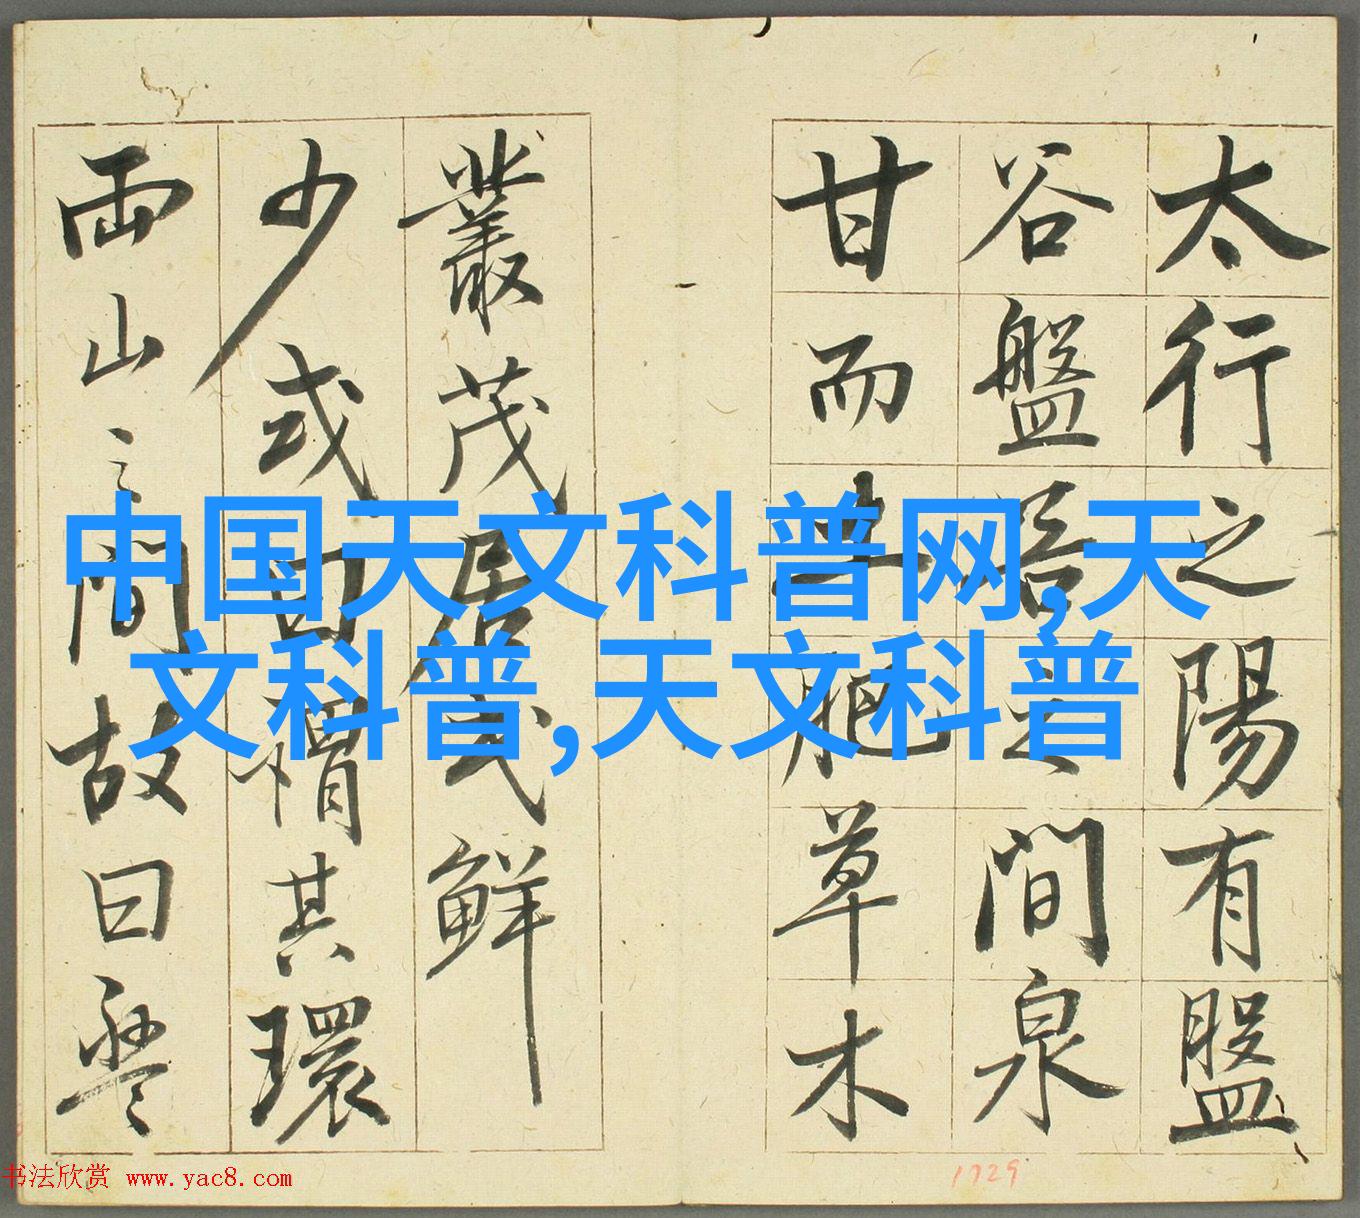 太行之陽有盤
谷盤谷之間泉
甘而土肥草木
叢茂居民鮮
少或曰謂其環
兩山之間故曰盤
中国天文科普网,天
文科普,天文科普
书法欣赏 www.yac8.com
1729